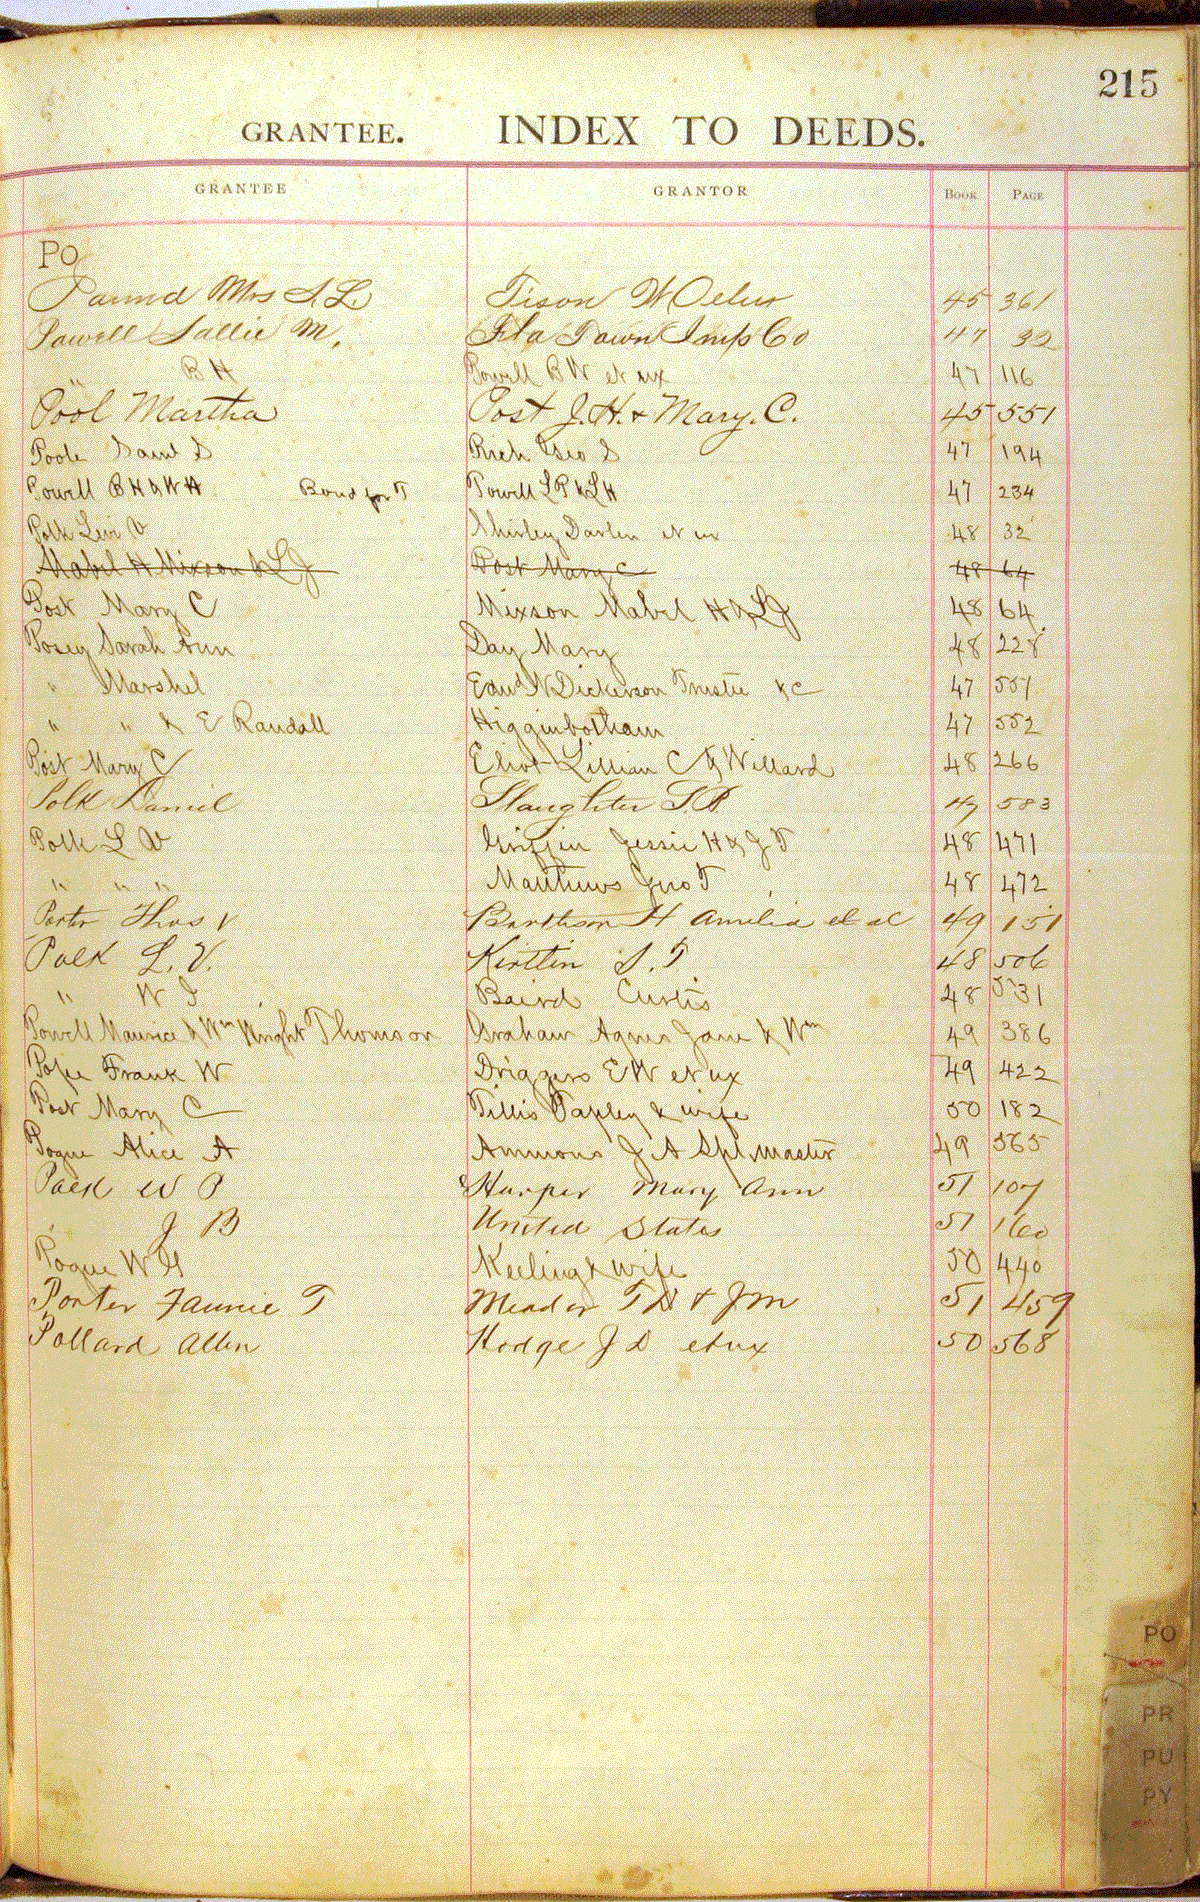 215
GRANTEE. INDEX TO DEEDS.
GRANTEE GRANTOR BOOK PAGE
PO
Mrs S. L. Tison W 45 361
Powell Sallie M. Fla Town Imp Co 47 32
" B H Powell B W et ux 47 116
Pool Martha Post J. H. & Mary. C. 45 551
Poole Saml S Rich Geo S 47 194
Powell B H & W H Bond for T Powell L P & L H 47 234
Polk Levi V Shirley Darlin et ux 48 32
Mabel H Mixson & L J Post Mary C 48 64
Post Mary C Mixson Mabel H & L J 48 64
Posey Sarah Ann Day Mary 48 228
" Marshel Edwd N Dickerson Trustee &c 47 551
" " & E Randall Higginbotham 47 552
Post Mary C Eliot Lillian C & Willard 48 266
Polk Daniel Slaughter 47 583
Polk L V Griffin Jessie H & J T 48 471
" " " Matthews Jno T 48 472
Porter Thos V H Amelia et al 49 151
Polk L. V. S. T 48 506
" W J Baird Curtis 48 531
Powell Maurice & Wm Wright Thomson Graham Agnes Jane & Wm 49 386
Pope Frank W Driggers E W et ux 49 422
Post Mary C Tillis Tapley & wife 50 182
Pogue Alice A Ammons J A Spl. Master 49 565
Polk W P Harper Mary Ann 51 107
J B United States 51 160
Pogue W G Keeling & wife 50 440
Porter Fannie T Meador T D & J M 51 459
Pollard Allen Hodge J D et ux 50 568
PO
PR
PU
PY